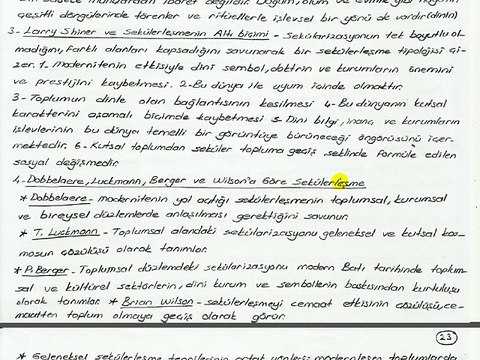 çeşitli döngülerinde törenler ve ritüellerle işlevsel bir yönü de vardır(dinin)
3- Larry Shiner ve Sekülerleşmenin Altı biçimi - Sekülarizasyonun tek boyutlu ol-
madığını, farklı alanları kapsadığını savunarak bir sekülerleşme tipolojisi çi-
zer. 1. Modernitenin etkisiyle dini sembol, doktrin ve kurumların önemini
ve prestijini kaybetmesi. 2-Bu dünya ile uyum içinde olmaktır.
3- Toplumun dinle olan bağlantısının kesilmesi 4- Bu dünyanın kutsal
karakterini aşamalı biçimde kaybetmesi 5- Dini bilgi, inanç ve kurumların
işlevlerinin bu dünya temelli bir görüntüye bürüneceği öngörüsünü içer-
mektedir. 6- Kutsal toplumdan seküler topluma geçiş şeklinde formüle edilen
sosyal değişmedir.
4- Dobbelaere, Luckmann, Berger ve Wilson'a Göre Sekülerleşme
* Dobbelaere- modernitenin yol açtığı sekülerleşmenin toplumsal, kurumsal
ve bireysel düzlemlerde anlaşılması gerektiğini savunur.
* T. Luckmann - Toplumsal alandaki sekülarizasyonu geleneksel ve kutsal koz-
mosun çözülüşü olarak tanımlar.
* P. Berger - Toplumsal düzlemdeki sekülarizasyonu modern Batı tarihinde toplum-
sal ve kültürel sektörlerin, dini kurum ve sembollerin baskısından kurtuluşu
olarak tanımlar * Brian Wilson - sekülerleşmeyi cemaat etkisinin çözülüşü, ce-
maatten toplum olmaya geçiş olarak görür.
23
* Geleneksel sekülerleşme teorilerinin ortak yönleri: modernleşen toplumlarda